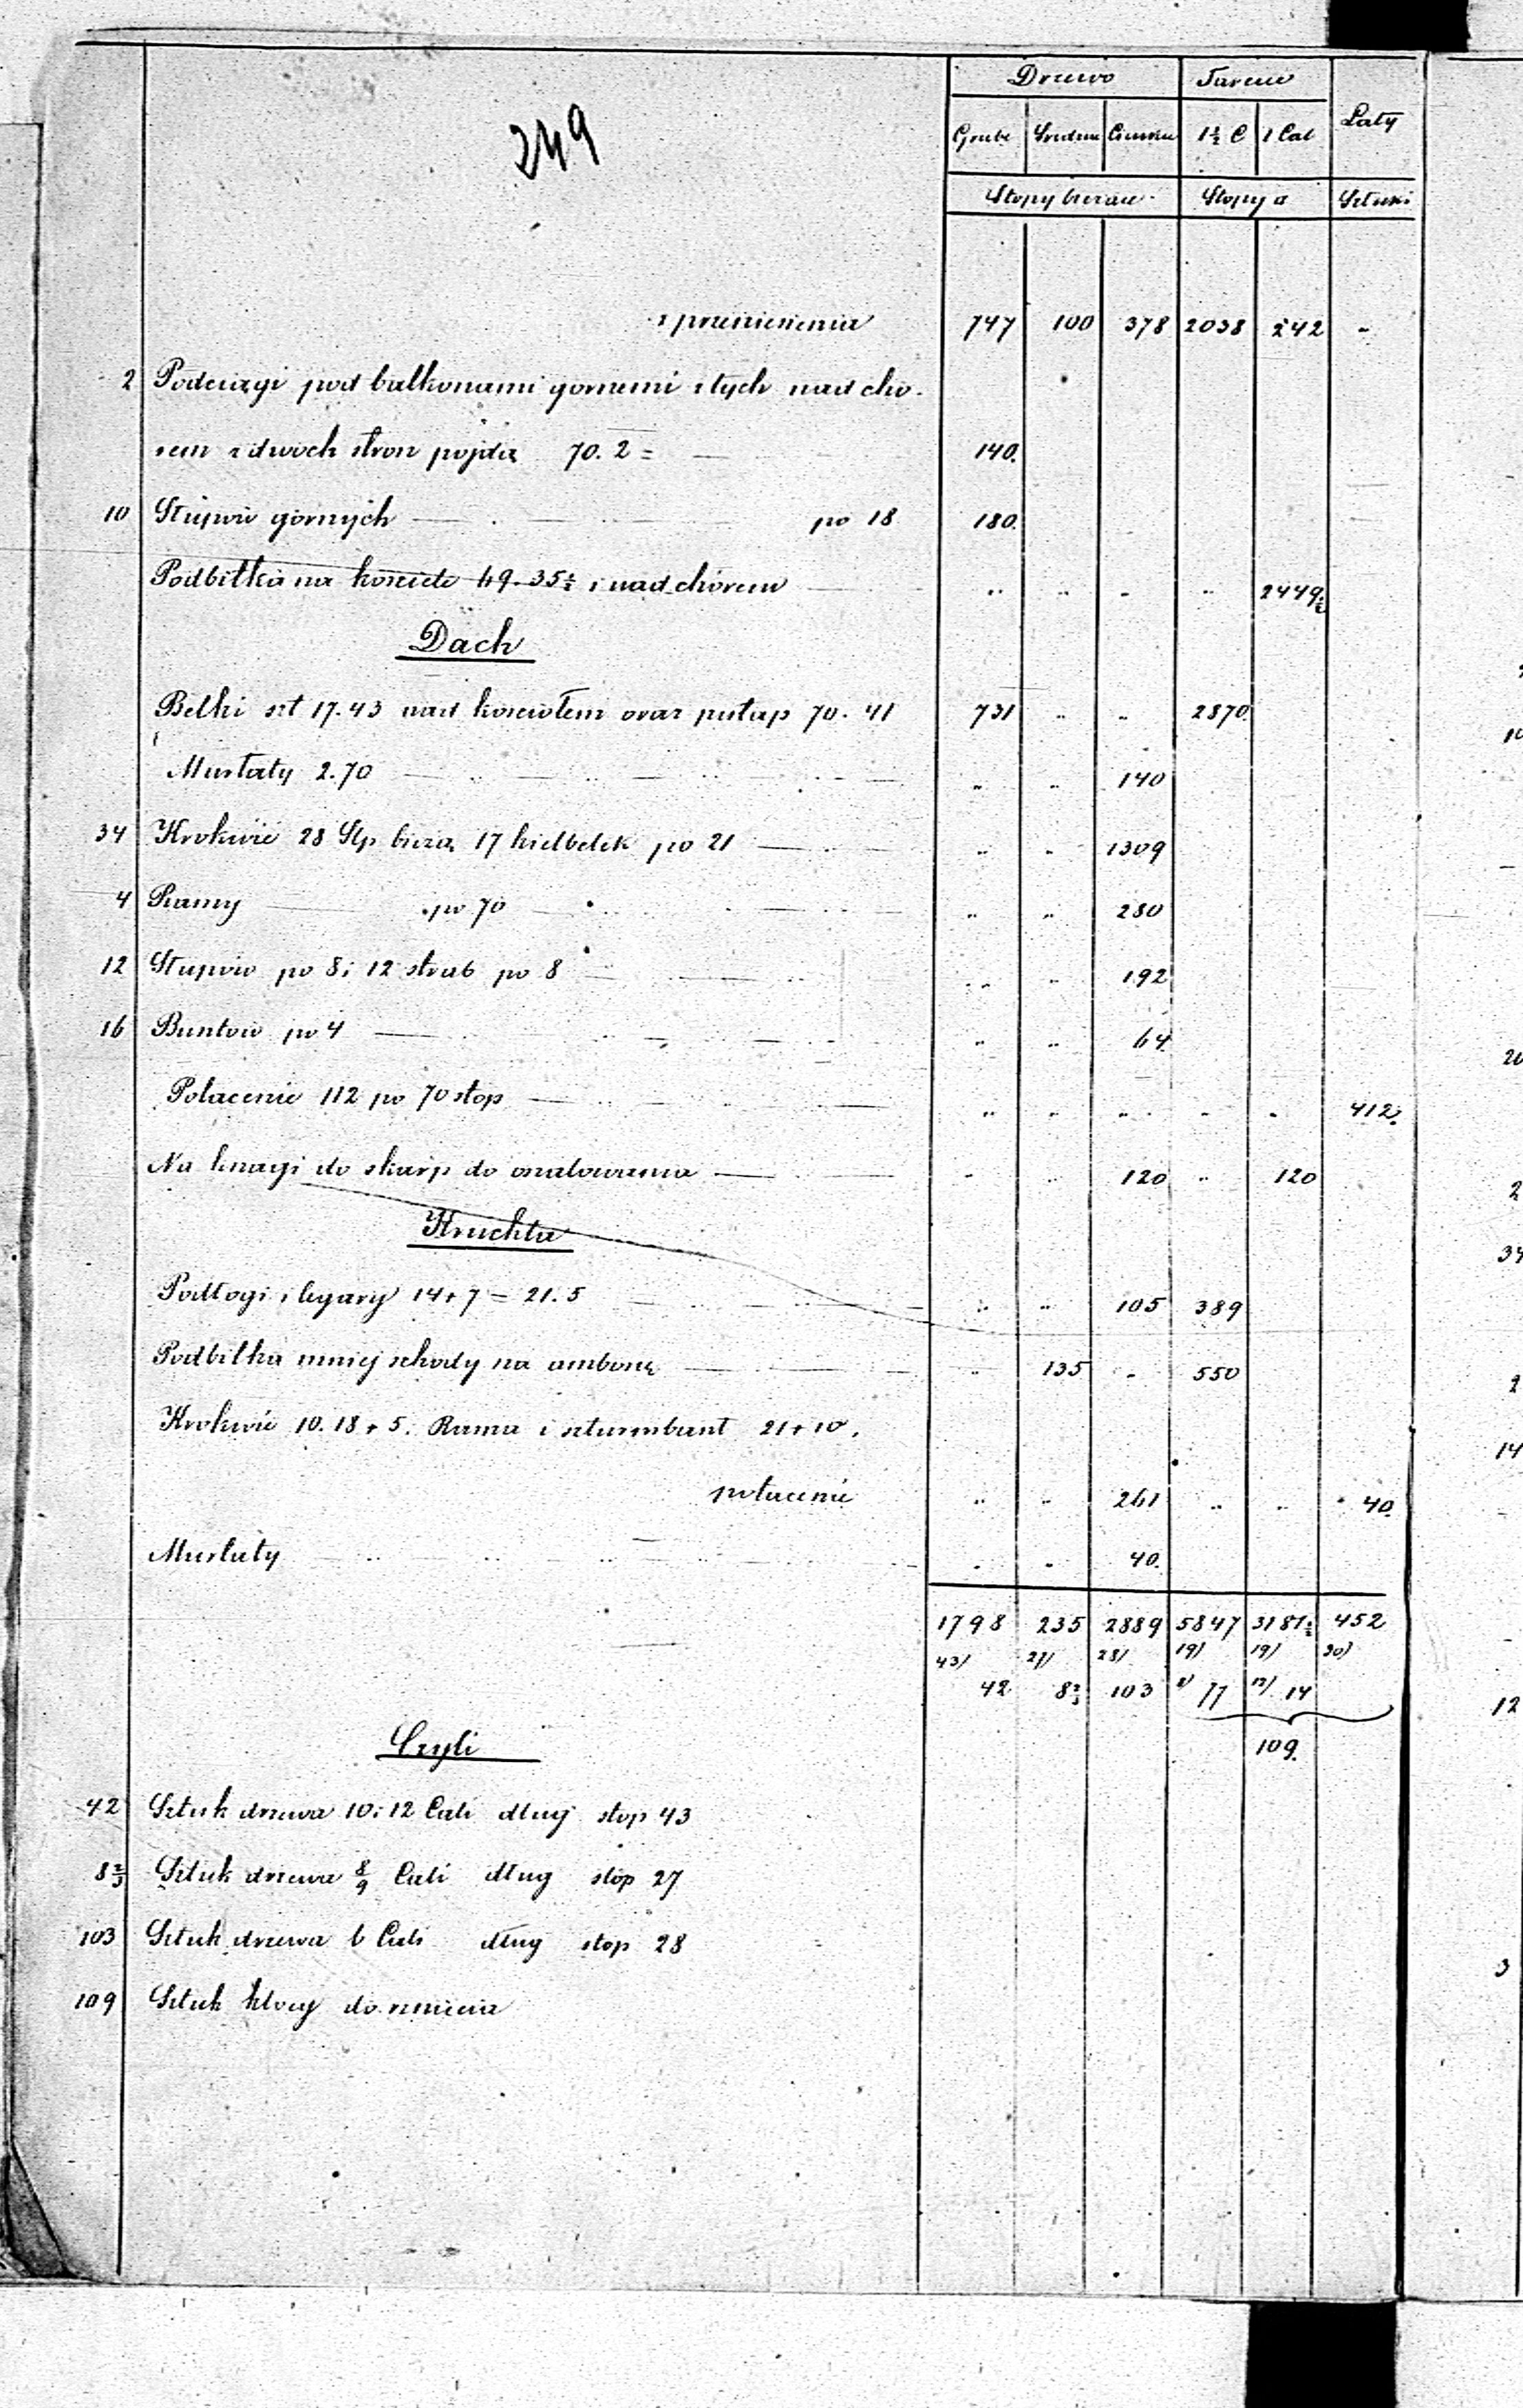 249
Drzewo Tarcice Łaty
Grube Średnie Cienkie 1½ C 1 Cal
Stopy bieżące Stopy □ Sztuki
z przeniesienia 747 100 378 2038 242 -
2 Podciągi pod balkonami gornemi z tych nad cho-
rem z dwóch stron pojdą 70. 2 = 140.
10 Słupów górnych po 18 180.
Podbitka na kościele 49. 35½ i nad chórem 2449½
Dach
Belki szt 17. 43 nad kościołem oraz pułap 70. 41 731 2870
Murłaty 2. 70 140
34 Krokwie 28 Stp bieżą 17 hielbelek po 21 1309
4 Ramy po 70 280
12 Słupów po 8 i 12 strab po 8 192
16 Buntów po 4 64
Połacenie 112 po 70 stop 412.
Na knagi do skarp do oszalowania 120 120
Kruchta
Podłogi i legary 14 + 7 = 21. 5 105 389
Podbitka mniej schody na ambonę 135 550
Krokwie 10. 18 + 5. Rama i szturmbant 21 + 10.
połacenie 261 40.
Murłaty 40.
1798 235 2889 5847 3181½ 452
43) 27) 28) 19) 19) 30)
42 8⅔ 103 77 14
109.
Czyli
42 Sztuk drzewa 10 i 12 Cali długi stop 43
8⅔ Sztuk drzewa 8/9 Cali dług stóp 27
103 Sztuk drzewa 6 Cali dług stop 28
109 Sztuk klocy do rznięcia